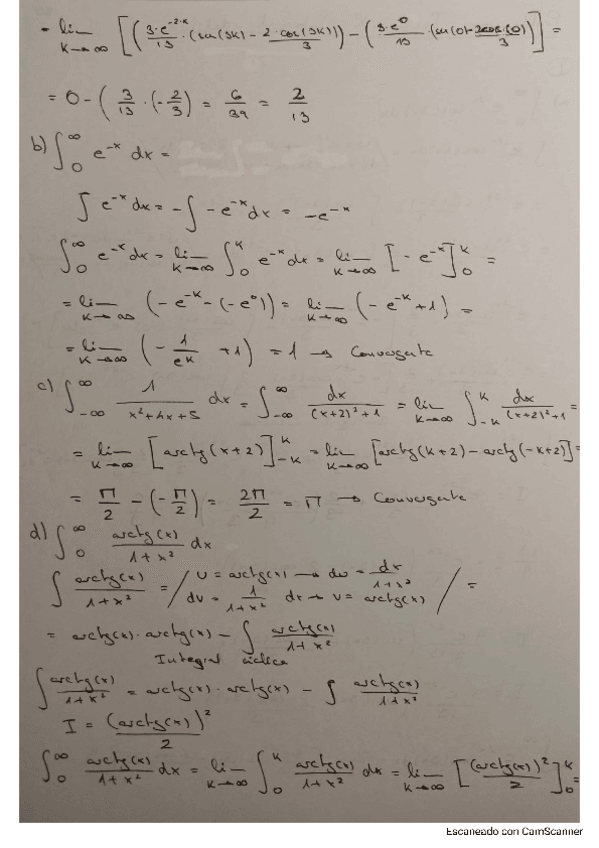 = lim k→∞ [(3·e^(-2·k)/13 · (sen(3k) - 2·cos(3k)/3)) - (3·e^0/13 · (sen(0) - 2cos(0)/3)] =
= 0 - (3/13 · (-2/3) = 6/39 = 2/13
b) ∫_0^∞ e^(-x) dx =
∫ e^(-x) dx = - ∫ -e^(-x) dx = -e^(-x)
∫_0^∞ e^(-x) dx = lim k→∞ ∫_0^k e^(-x) dx = lim k→∞ [-e^(-x)]_0^k =
= lim k→∞ (-e^(-k) - (-e^0)) = lim k→∞ (-e^(-k) + 1) =
= lim k→∞ (-1/e^k + 1) = 1 → Convergente
c) ∫_(-∞)^∞ 1/(x²+4x+5) dx = ∫_(-∞)^∞ dx/((x+2)²+1) = lim k→∞ ∫_(-k)^k dx/((x+2)²+1) =
= lim k→∞ [arctg(x+2)]_(-k)^k = lim k→∞ [arctg(k+2) - arctg(-k+2)] =
= π/2 - (-π/2) = 2π/2 = π → Convergente
d) ∫_0^∞ arctg(x)/(1+x²) dx
∫ arctg(x)/(1+x²) = / u = arctg(x) → du = dx/(1+x²)
dv = 1/(1+x²) dx → v = arctg(x) / =
= arctg(x) · arctg(x) - ∫ arctg(x)/(1+x²)
Integral cíclica
∫ arctg(x)/(1+x²) = arctg(x) · arctg(x) - ∫ arctg(x)/(1+x²)
I = (arctg(x))²/2
∫_0^∞ arctg(x)/(1+x²) dx = lim k→∞ ∫_0^k arctg(x)/(1+x²) dx = lim k→∞ [(arctg(x))²/2]_0^k =
Escaneado con CamScanner